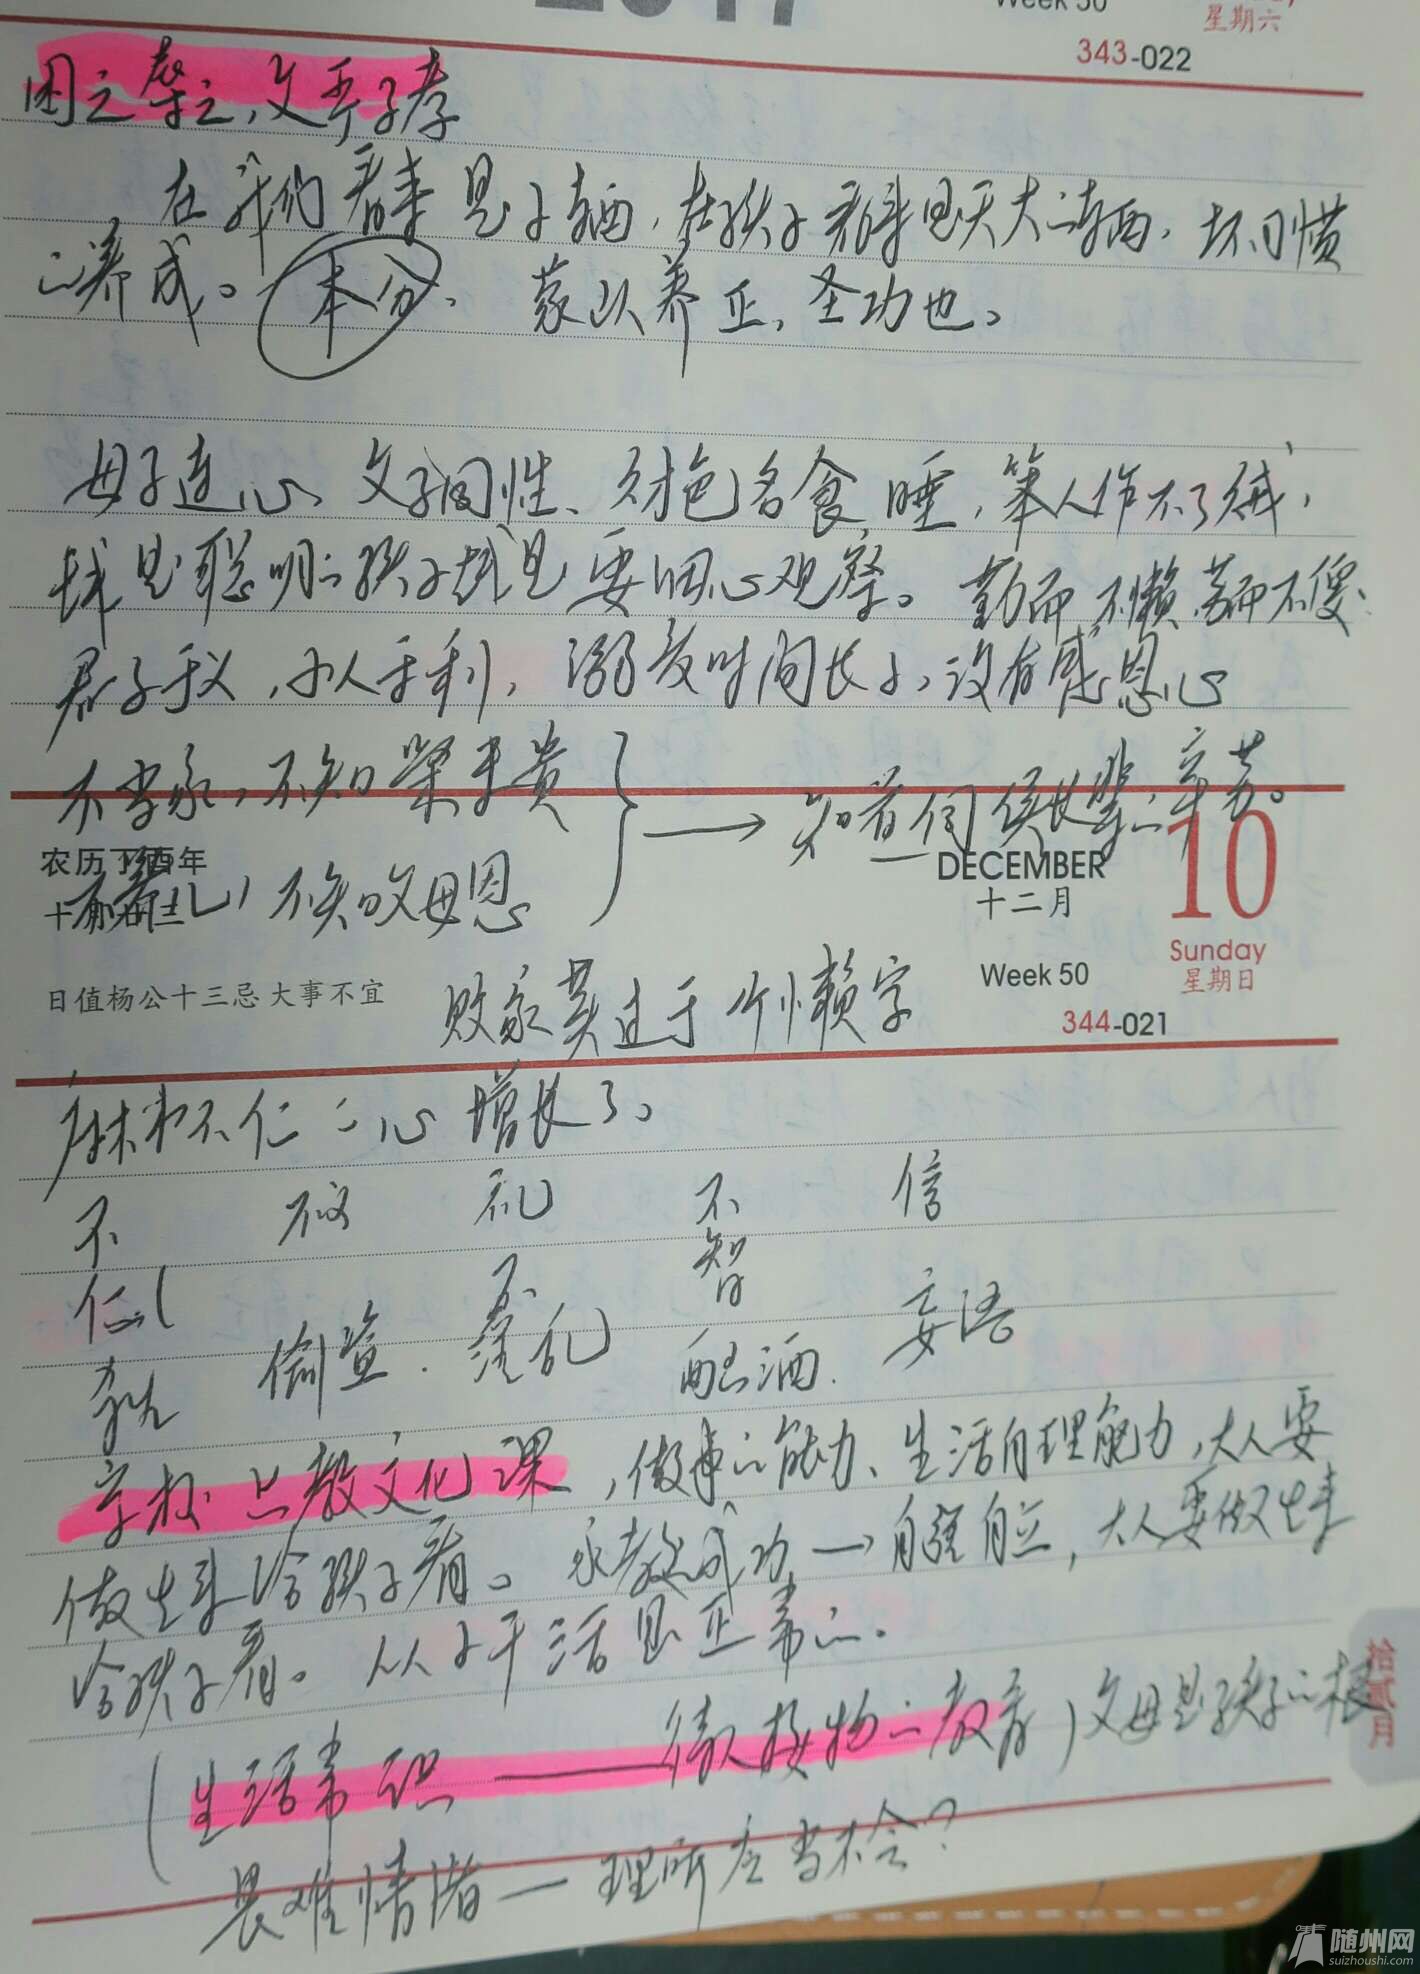 2017
Week 50
星期六
343-022
困之養之,父严子孝
在我们看来是小事,在孩子看来是天大的事,坏习惯
的养成。本分、蒙以养正,圣功也。
母子连心,父子同性、财色名食睡,笨人作不了贼,
贼是聪明的孩子 是要细心观察。勤而不懒,
君子于义,小人于利,溺爱时间长了,没有感恩心
不当家,不知柴米贵
→ 知道伺候长辈的辛苦。
农历丁酉年
DECEMBER
10
不养儿,不知父母恩
十二月
Sunday
日值杨公十三忌 大事不宜
败家莫过于个懒字
Week 50
星期日
344-021
麻木不仁的心增长了。
不仁 不义 礼 不智 信
杀 偷盗. 不 乱 酗酒. 妄语
学校只教文化课,做事的能力、生活自理能力,大人要
做出来给孩子看。家教成功→自强自立,大人要做出来
给孩子看。从小干活是正常的.
(生活常识——待人接物的教育)父母是孩子的根
畏难情绪—理所应当不会?
拾贰月
随州网
suizhoushi.com